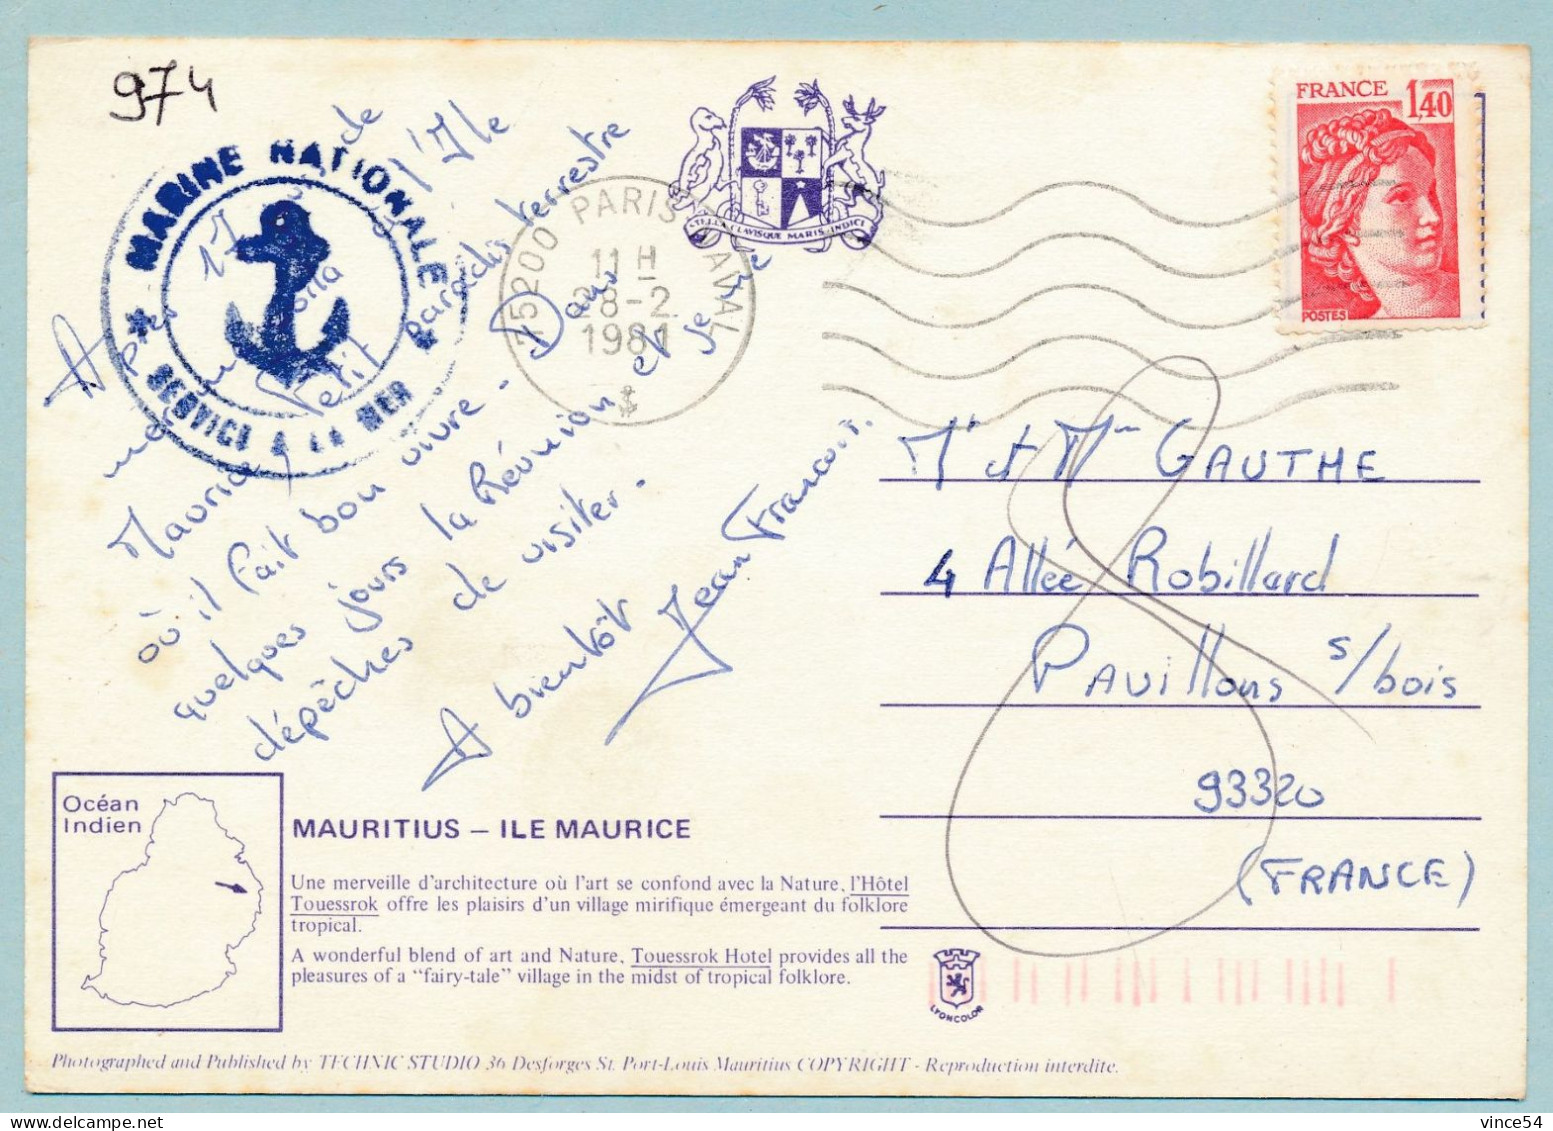 974
MARINE NATIONALE
★ SERVICE A LA MER ★
Après 17 jours de
mer me voilà à l'Ile
Maurice, Petit paradis terrestre
où il fait bon vivre - Dans
quelques jours la Réunion et je me
dépêches de visiter.
A bientôt Jean François.
STELLA CLAVISQUE MARIS INDICI
75200 PARIS NAVAL
11 H
28-2
1981
FRANCE 1,40
POSTES
Mr et Mme GAUTHE
4 Allée Robillard
PAVillons s/bois
93320
(FRANCE)
Océan
Indien
MAURITIUS – ILE MAURICE
Une merveille d'architecture où l'art se confond avec la Nature, l'Hôtel
Touessrok offre les plaisirs d'un village mirifique émergeant du folklore
tropical.
A wonderful blend of art and Nature, Touessrok Hotel provides all the
pleasures of a “fairy-tale” village in the midst of tropical folklore.
LYONCOLOR
Photographed and Published by TECHNIC STUDIO 36 Desforges St. Port-Louis Mauritius COPYRIGHT - Reproduction interdite.
vince54